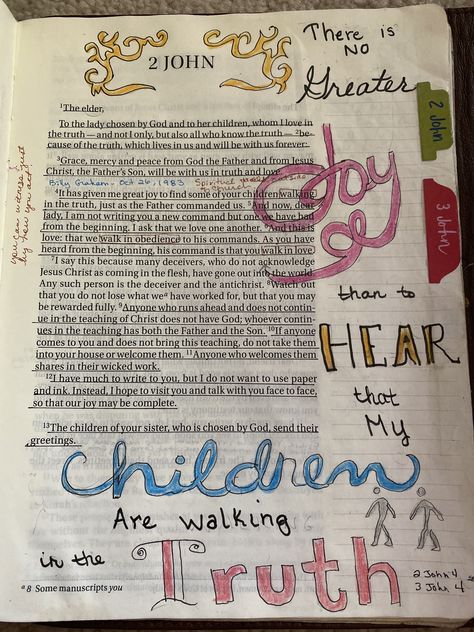 There is
NO
Greater
Joy
than to
HEAR
that
My
Children
Are walking
in the Truth
2 John 4
3 John 4
2 John
3 John
2 JOHN
¹The elder,
To the lady chosen by God and to her children, whom I love in
the truth — and not I only, but also all who know the truth — ²be-
cause of the truth, which lives in us and will be with us forever:
³Grace, mercy and peace from God the Father and from Jesus
Christ, the Father's Son, will be with us in truth and love.
Billy Graham - Oct 26, 1983
Spiritual
⁴It has given me great joy to find some of your children walking
in the truth, just as the Father commanded us. ⁵And now, dear
lady, I am not writing you a new command but one we have had
from the beginning. I ask that we love one another. ⁶And this is
love: that we walk in obedience to his commands. As you have
heard from the beginning, his command is that you walk in love.
⁷I say this because many deceivers, who do not acknowledge
Jesus Christ as coming in the flesh, have gone out into the world.
Any such person is the deceiver and the antichrist. ⁸Watch out
that you do not lose what weᵃ have worked for, but that you may
be rewarded fully. ⁹Anyone who runs ahead and does not contin-
ue in the teaching of Christ does not have God; whoever contin-
ues in the teaching has both the Father and the Son. ¹⁰If anyone
comes to you and does not bring this teaching, do not take them
into your house or welcome them. ¹¹Anyone who welcomes them
shares in their wicked work.
¹²I have much to write to you, but I do not want to use paper
and ink. Instead, I hope to visit you and talk with you face to face,
so that our joy may be complete.
¹³The children of your sister, who is chosen by God, send their
greetings.
ᵃ 8 Some manuscripts you
you can witness just
by how you act